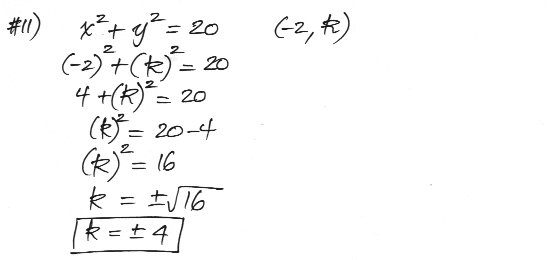 #11) x² + y² = 20 (-2, k)
(-2)² + (k)² = 20
4 + (k)² = 20
(k)² = 20 - 4
(k)² = 16
k = ±√16
k = ± 4